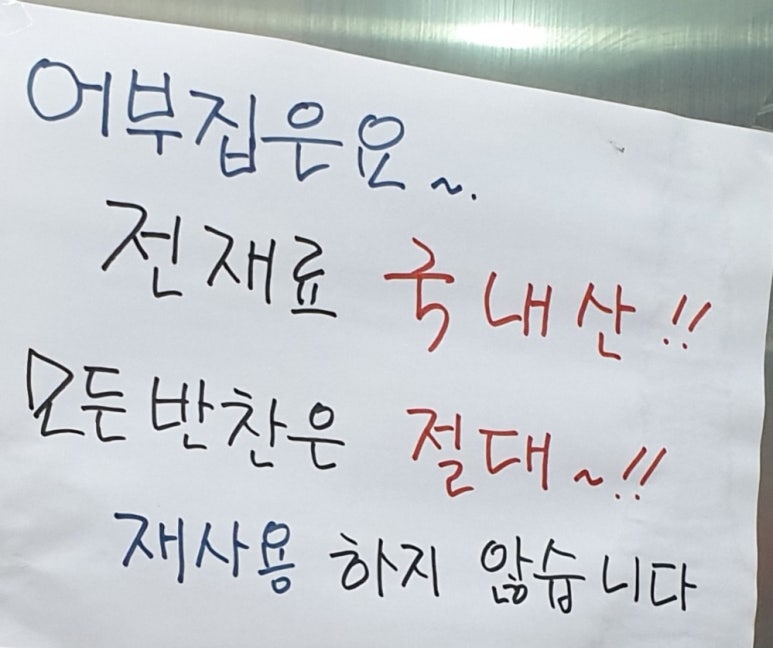 어부집은요~.
전재료 국내산!!
모든반찬은 절대~!!
재사용 하지 않습니다